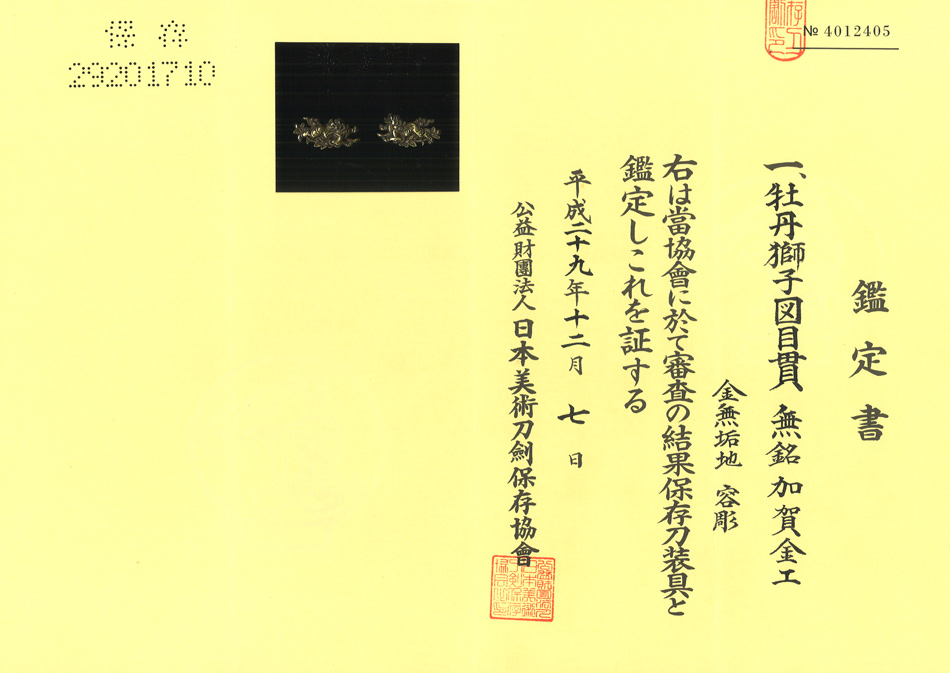 № 4012405
鑑定書
一、牡丹獅子図目貫 無銘 加賀金工
金無垢地 容彫
右は當協會に於て審査の結果保存刀装具と
鑑定しこれを証する
平成二十九年十二月 七 日
公益財團法人 日本美術刀劍保存協會
保存
29201710